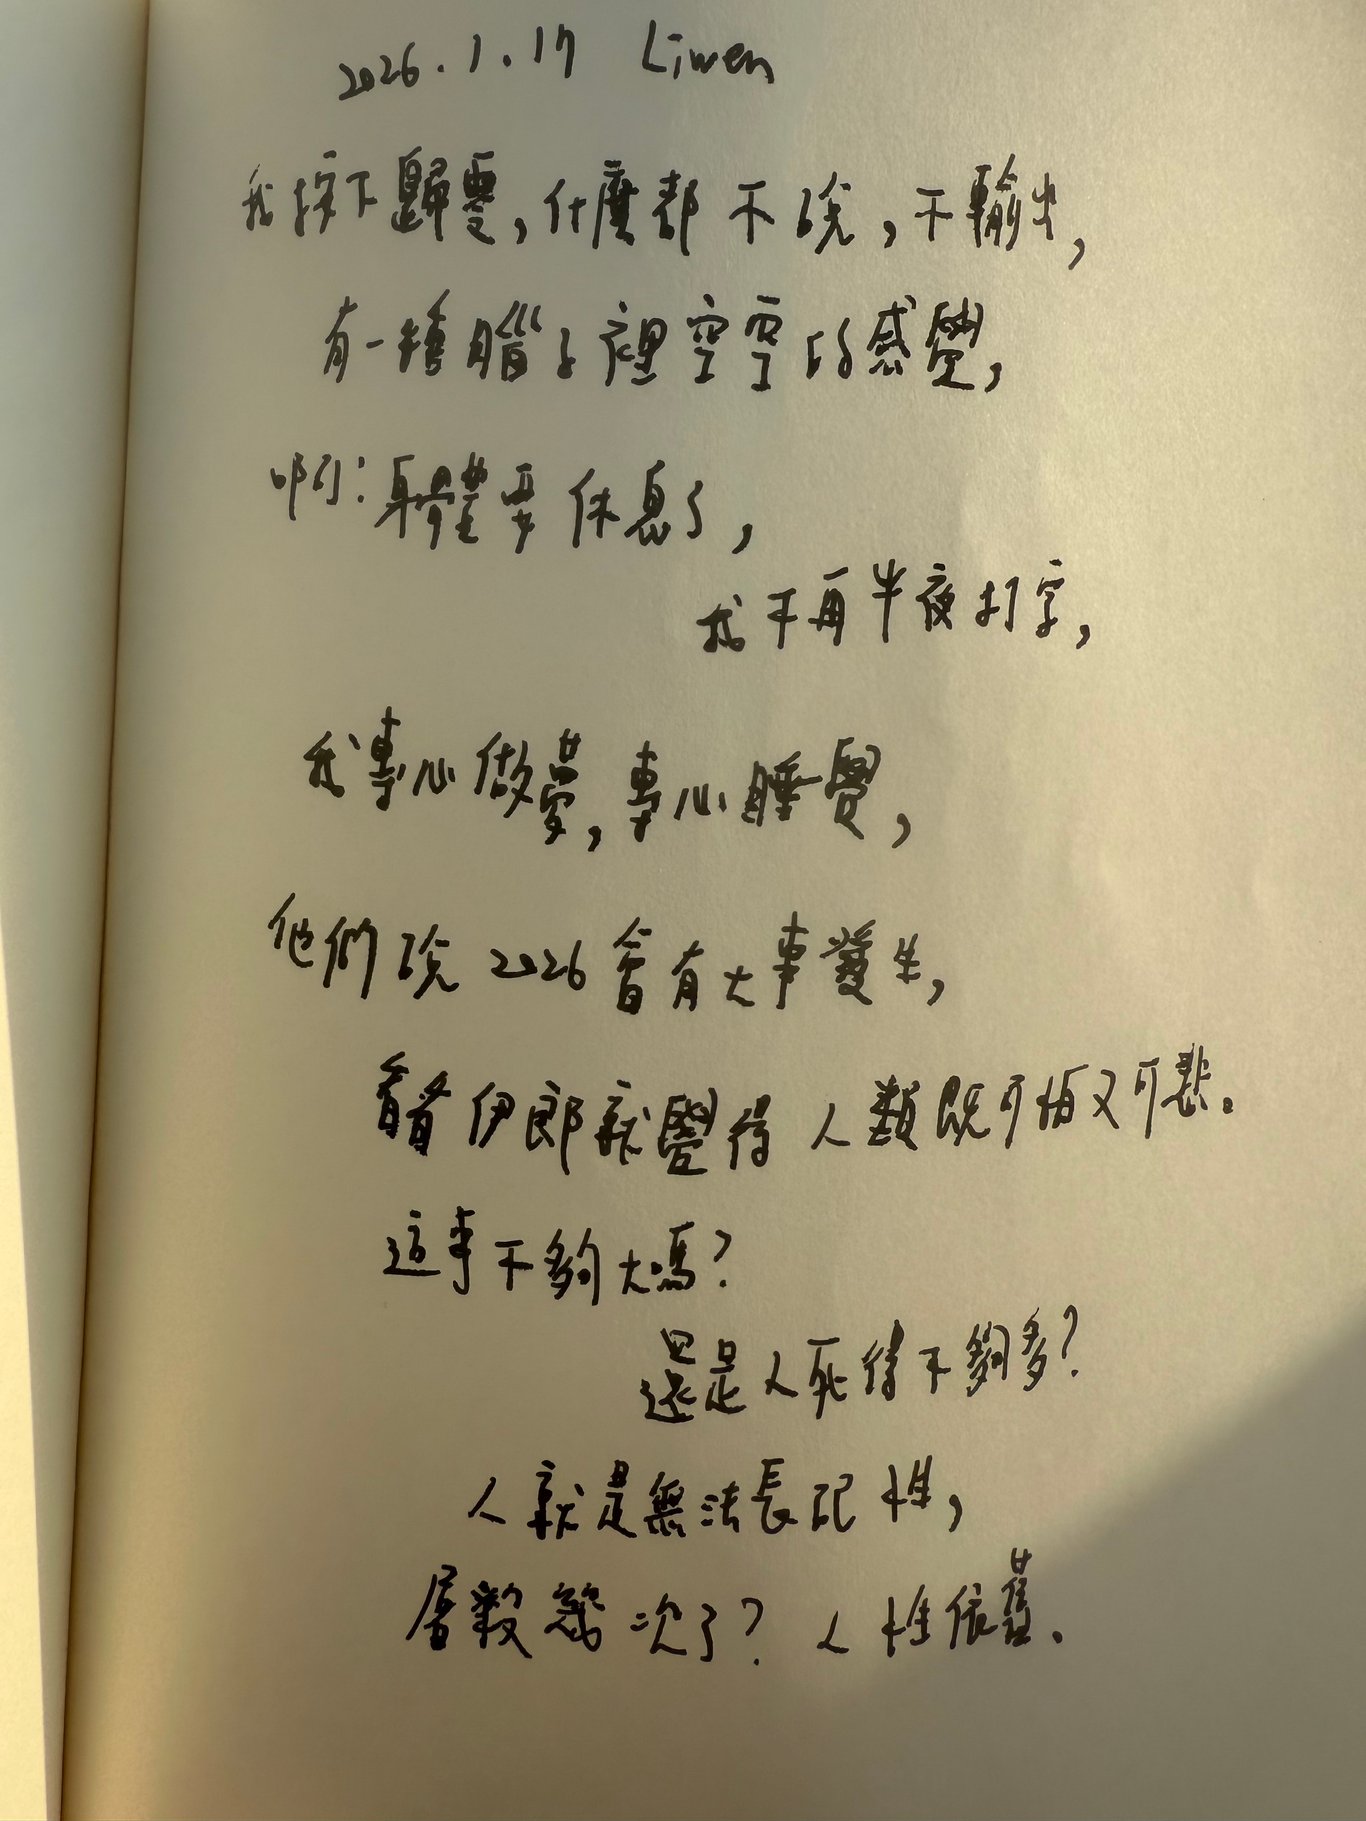 2026.1.17 Liwen
我按下歸零，什麼都不說，不輸出，
有一種腦子裡空空的感覺，
啊：身體要休息了，
我不再半夜打字，
我專心做夢，專心睡覺，
他們說2026會有大事發生，
看看伊郎就覺得人類既可怕又可悲。
這事不夠大嗎？
還是人死得不夠多？
人就是無法長記性，
屠殺幾次了？人性依舊。